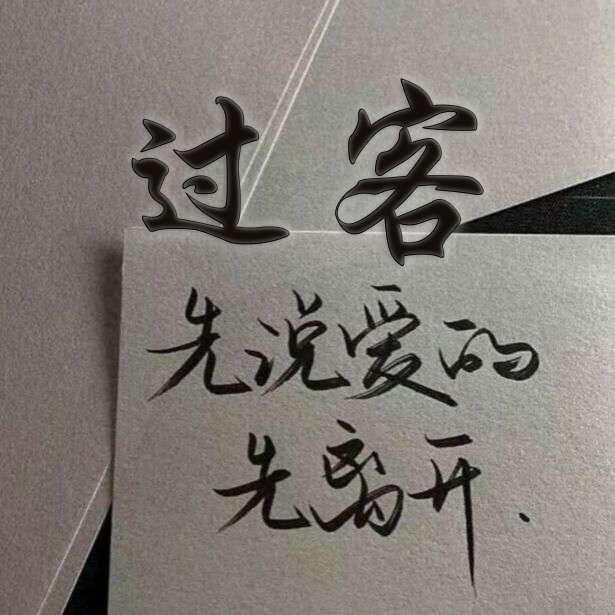 过客
先说爱的
先离开.